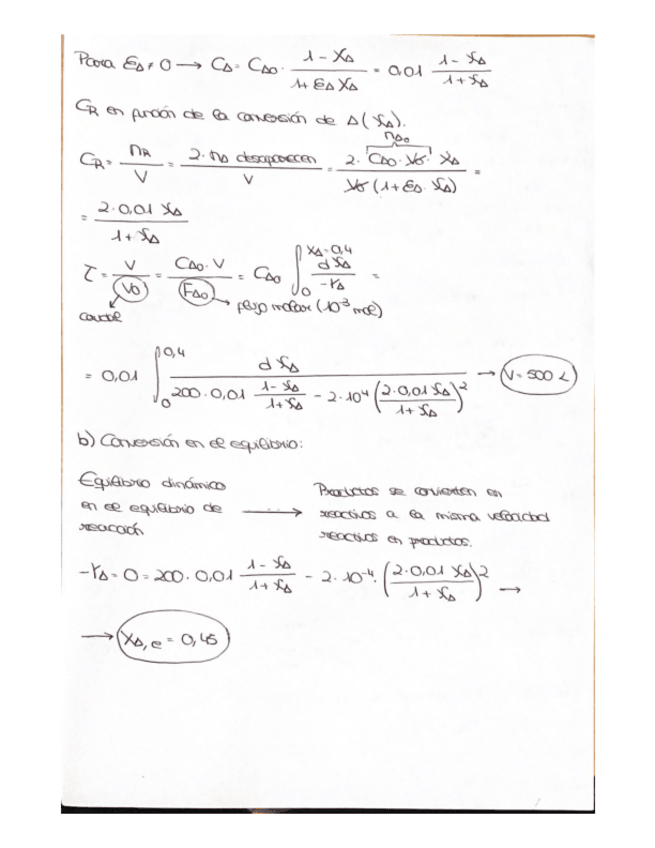 Para εA ≠ 0 → CA = CA0 · (1 - XA)/(1 + εA XA) = 0,01 (1 - XA)/(1 + XA)
CR en función de la conversión de A (XA).
CR = nR/V = (2 · nA desaparecen)/V = (2 · CA0 · V0 · XA)/(V0 (1 + εA · XA)) =
nA0
= (2·0,01 XA)/(1 + XA)
τ = V/V0 = (CA0 · V)/FA0 = CA0 ∫0^XA=0,4 dXA/-rA =
caudal
flujo molar (10^-3 mol)
= 0,01 ∫0^0,4 dXA/(200·0,01 (1 - XA)/(1 + XA) - 2·10^4 ((2·0,01 XA)/(1 + XA))^2) → V = 500 L
b) Conversión en el equilibrio:
Equilibrio dinámico
en el equilibrio de
reacción
→
Productos se convierten en
reactivos a la misma velocidad
reactivos en productos.
-rA = 0 = 200·0,01 (1 - XA)/(1 + XA) - 2·10^-4 · ((2·0,01 XA)/(1 + XA))^2 →
→ XA,e = 0,45